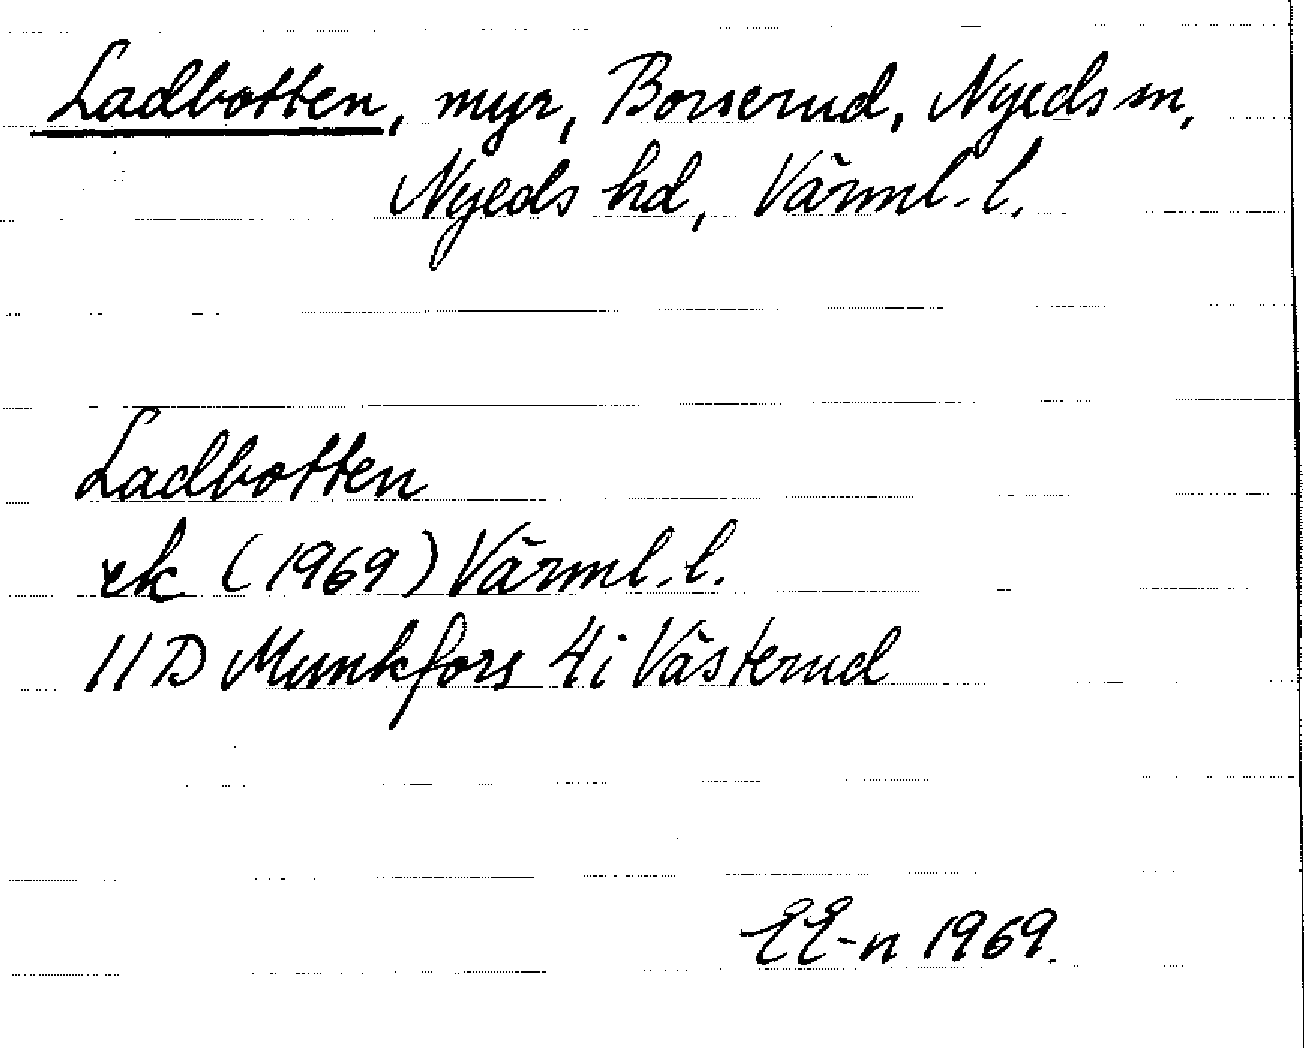 Ladbotten, myr, Borserud, Nyeds sn,
Nyeds hd, Värml. l.
Ladbotten
ek (1969) Värml. l.
11 D Munkfors 4i Västerud
EE-n 1969.